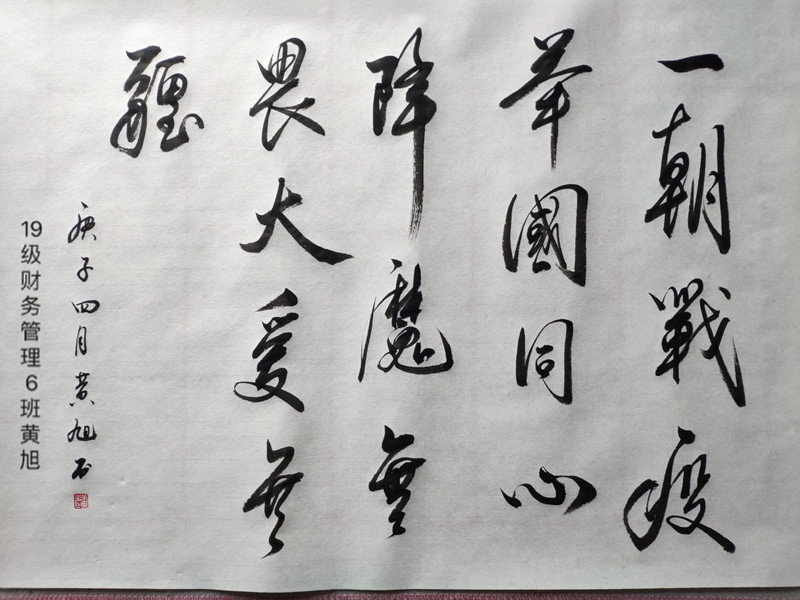 一朝戰疫
舉國同心
降魔無
畏大愛無
疆
庚子四月黄旭书
19级财务管理6班黄旭